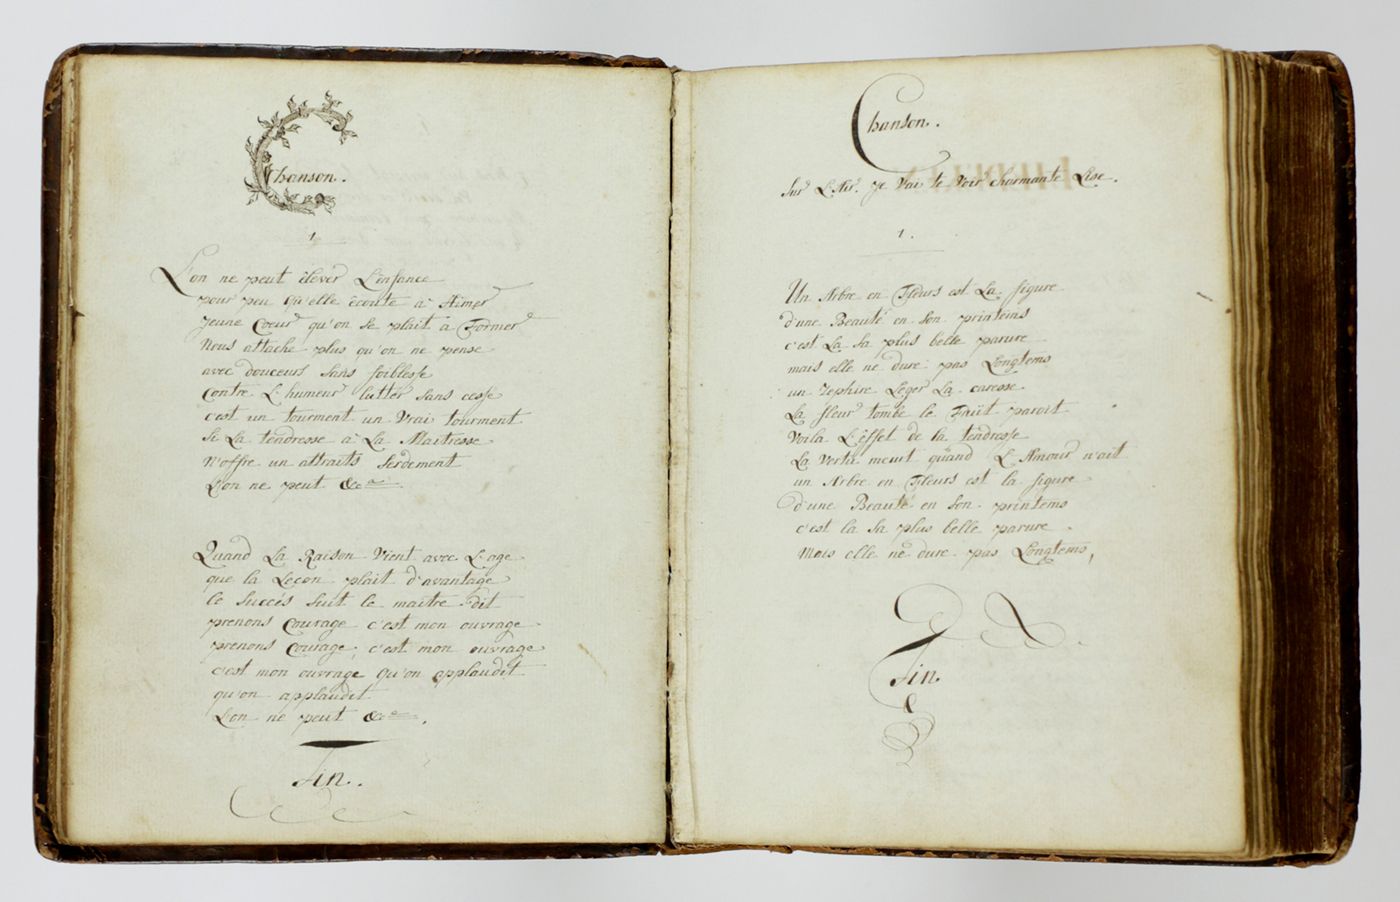 Chanson.
1
L'on ne peut élever L'enfance
pour peu qu'elle écoute à Aimer
Jeune Coeur qu'on se plait à Former
Nous attache plus qu'on ne pense
avec douceurs sans foiblesse
Contre L'humeur lutter sans cesse
c'est un tourment un Vrai tourment
Si La tendresse à La Maitresse
N'offre un attraits Serdement
L'on ne peut &ca
Quand La Raison Vient avec L'age
que la Leçon plait d'avantage
le Succés Suit le maitre dit
prenons Courage c'est mon ouvrage
prenons Courage, c'est mon ouvrage
c'est mon ouvrage Qu'on applaudit
qu'on applaudit
L'on ne peut &ca.
Fin.
Chanson.
Sur L'Air. Je Vai te Voir charmante Lise.
1.
Un Arbre en Fleurs est La figure
d'une Beauté en Son printems
c'est La Sa plus belle parure
mais elle ne dure pas Longtems
un Zephire Léger La caresse
La fleur tombe le Fruit paroit
Voila L'éffet de la tendresse
La Vertu meurt quand L'Amour n'ait
un Arbre en Fleurs est la figure
d'une Beauté en Son printems
c'est la Sa plus belle parure
Mais elle ne dure pas Longtems,
Fin.